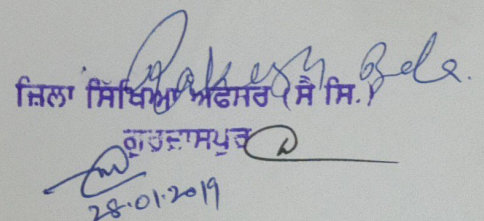 Rakesh Bala.
ਜ਼ਿਲਾ ਸਿੱਖਿਆ ਅਫਸਰ (ਸੈ ਸਿ.)
ਗੁਰਦਾਸਪੁਰ
28.01.2019